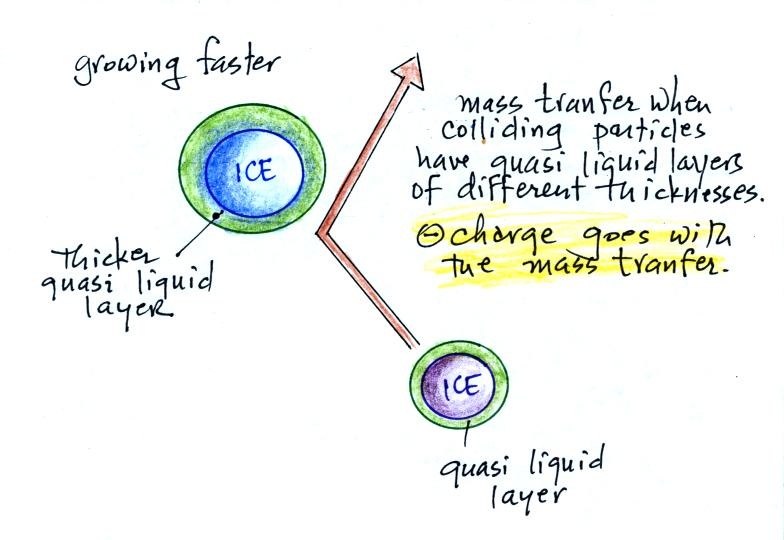 growing faster
ICE
Thicker
quasi liquid
layer
mass tranfer when
colliding particles
have quasi liquid layers
of different thicknesses.
⊖ charge goes with
the mass tranfer.
ICE
quasi liquid
layer